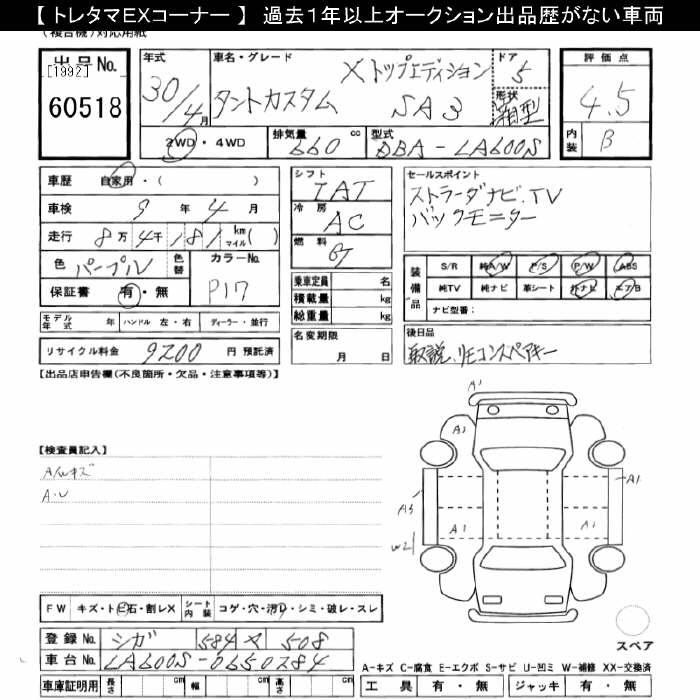 【 トレタマEXコーナー 】 過去1年以上オークション出品歴がない車両
(複合機)対応用紙
出品No.
[1992]
60518
年式
30/4月
車名・グレード
Xトップエディション
タントカスタム SAⅢ
ドア
5
形状
箱型
評価点
4.5
内装
B
2WD・4WD
排気量
660 cc
型式
DBA-LA600S
車歴 自家用・( )
車検 9 年 4 月
走行 8万 4千 181 km マイル( )
色 パープル 色替
カラーNo. P17
保証書 有・無
シフト
IAT
冷房
AC
燃料
乗車定員 名
積載量 kg
総重量 kg
セールスポイント
ストラーダナビ.TV
バックモニター
装備品
S/R 純A/W P/S P/W ABS
純TV 純ナビ 革シート 社ナビ エアB
ナビ型番:
モデル年式 年 ハンドル 左・右 ディーラー・並行
リサイクル料金 9200 円 預託済
名変期限
月 日
後日品
取説、リモコンスペアキー
【出品店申告欄(不良箇所・欠品・注意事項等)】
【検査員記入】
A/Wキズ
A・U
A1
A1
A3
A1
A1
A1
W2
FW キズ・トビ石・割レX シート内装 コゲ・穴・汚レ・シミ・破レ・スレ
登録No. シガ 584 ヤ 508
車台No. LA600S-0650284
車庫証明用 長さ cm 幅 cm 高さ cm
スペア
A-キズ C-腐食 E-エクボ S-サビ U-凹ミ W-補修 XX-交換済
工具 有・無 ジャッキ 有・無